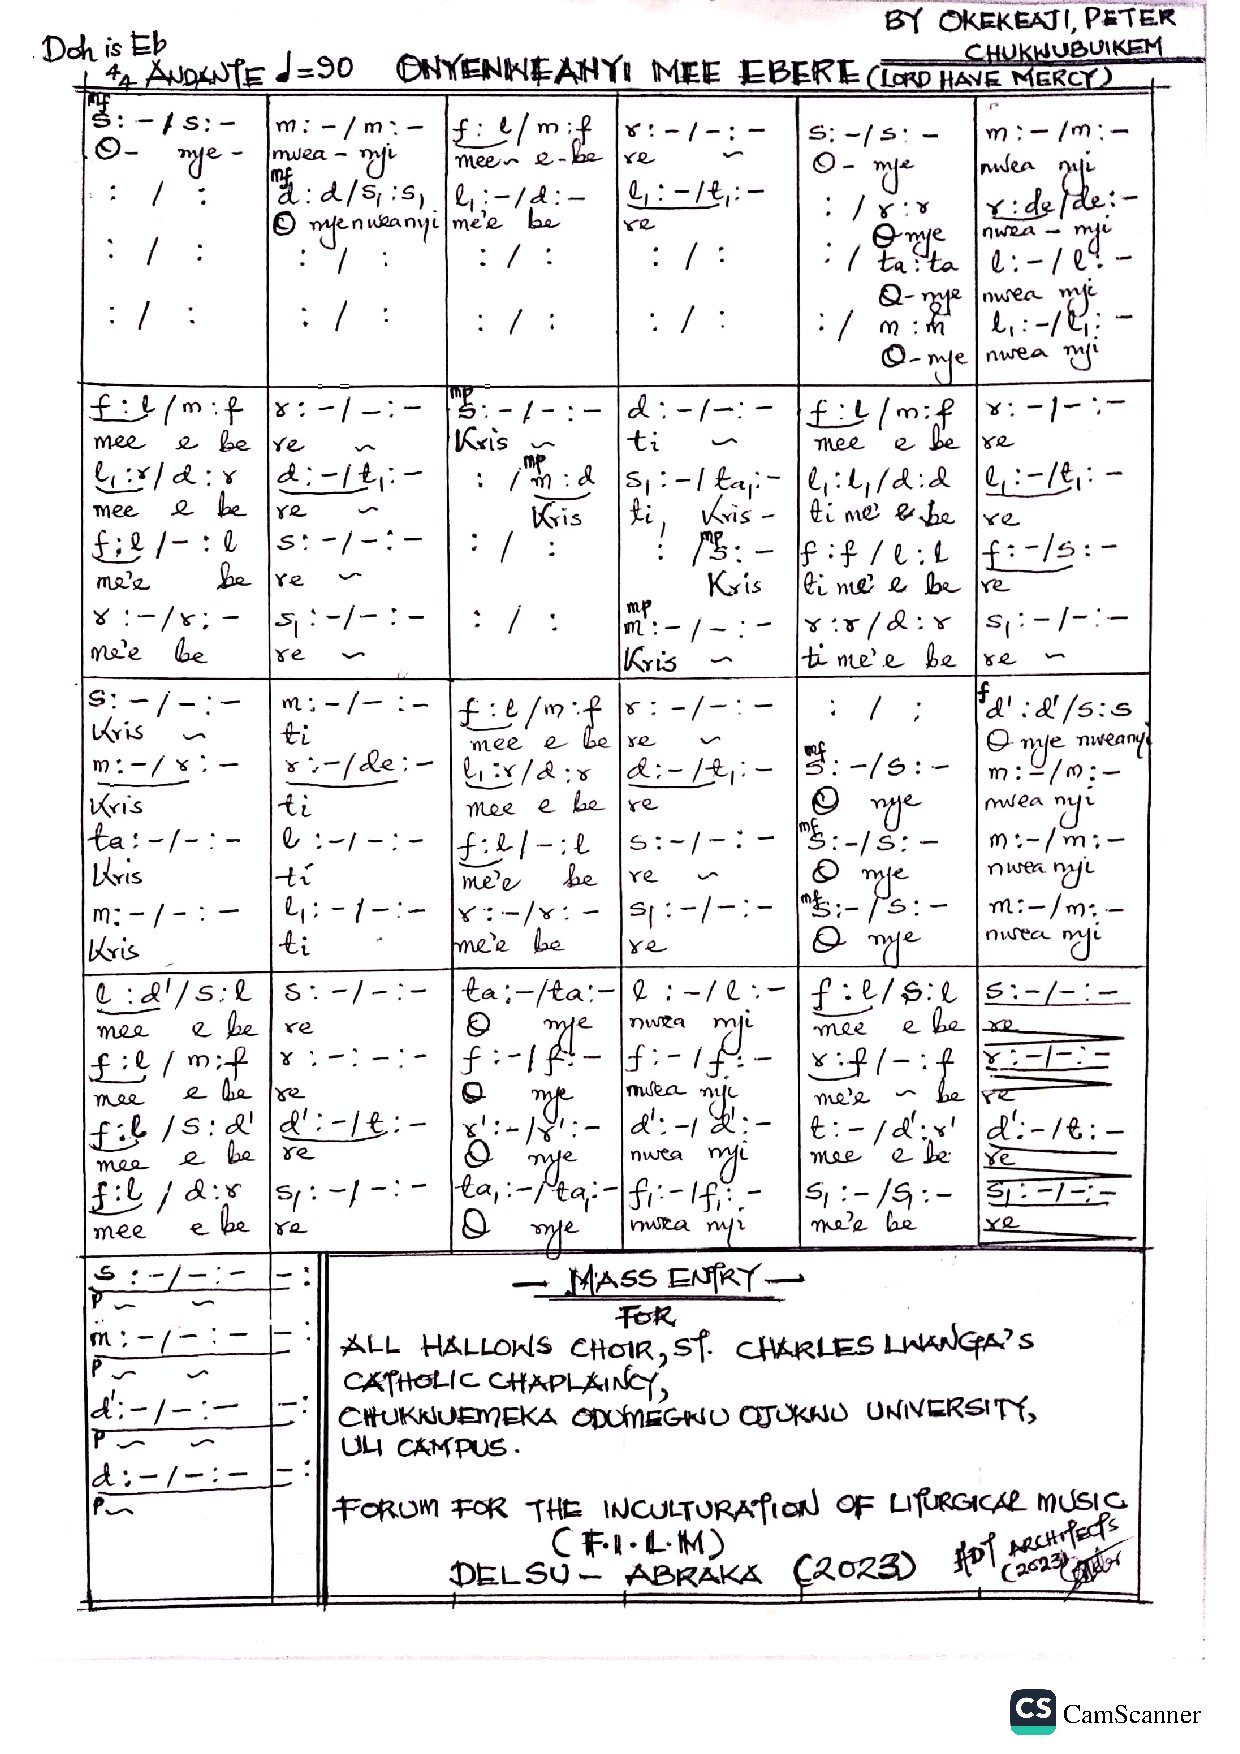 BY OKEKEAJI, PETER
CHUKWUBUIKEM
Doh is Eb
4/4 ANDANTE ♩=90 ONYENWEANYI MEE EBERE (LORD HAVE MERCY)
mf
s: – / s: – | m: – / m: – | f: l / m: f | r: – / –: – | s: – / s: – | m: – / m: –
O- nye - | nwea - nyi | mee ~ e - be | re ~ | O - nye | nwea nyi
mf
: / : | d: d / s₁: s₁ | l₁: – / d: – | l₁: – / t₁: – | : / r: r | r: de / de: –
O nyenweanyi | me'e be | re | O-nye | nwea - nyi
: / : | : / : | : / : | : / : | : / ta: ta | l: – / l: –
O-nye | nwea nyi
: / : | : / : | : / : | : / : | : / m: m | l₁: – / l₁: –
O-nye | nwea nyi
mp
f: l / m: f | r: – / –: – | s: – / –: – | d: – / –: – | f: l / m: f | r: – / –: –
mee e be | re ~ | Kris ~ | ti ~ | mee e be | re
mp
l₁: r / d: r | d: – / t₁: – | : / m: d | s₁: – / ta₁: – | l₁: l₁ / d: d | l₁: – / t₁: –
mee e be | re ~ | Kris | ti, Kris - | ti me' e be | re
mp
f: l / –: l | s: – / –: – | : / : | : / s: – | f: f / l: l | f: – / s: –
me'e be | re ~ | Kris | ti me' e be | re
mp
r: – / r: – | s₁: – / –: – | : / : | m: – / –: – | r: r / d: r | s₁: – / –: –
me'e be | re ~ | Kris ~ | ti me'e be | re ~
f
s: – / –: – | m: – / –: – | f: l / m: f | r: – / –: – | : / : | d': d' / s: s
Kris ~ | ti | mee e be | re ~ | O nye nweanyi
mf
m: – / r: – | r: – / de: – | l₁: r / d: r | d: – / t₁: – | s: – / s: – | m: – / m: –
Kris | ti | mee e be | re | O nye | nwea nyi
mf
ta: – / –: – | l: – / –: – | f: l / –: l | s: – / –: – | s: – / s: – | m: – / m: –
Kris | ti | me'e be | re ~ | O nye | nwea nyi
mf
m: – / –: – | l₁: – / –: – | r: – / r: – | s₁: – / –: – | s: – / s: – | m: – / m: –
Kris | ti | me'e be | re | O nye | nwea nyi
l: d' / s: l | s: – / –: – | ta: – / ta: – | l: – / l: – | f: l / s: l | s: – / –: –
mee e be | re | O nye | nwea nyi | mee e be | re
f: l / m: f | r: – : – : – | f: – / f: – | f: – / f: – | r: f / –: f | r: – / –: –
mee e be | re | O nye | nwea nyi | me'e ~ be | re
f: l / s: d' | d': – / t: – | r': – / r': – | d': – / d': – | t: – / d': r' | d': – / t: –
mee e be | re | O nye | nwea nyi | mee e be | re
f: l / d: r | s₁: – / –: – | ta₁: – / ta₁: – | f₁: – / f₁: – | s₁: – / s₁: – | s₁: – / –: –
mee e be | re | O nye | nwea nyi | me'e be | re
s: – / –: – | – :
P ~ ~
m: – / –: – | – :
P ~ ~
d': – / –: – | – :
P ~ ~
d: – / –: – | – :
P ~
— MASS ENTRY —
FOR
ALL HALLOWS CHOIR, ST. CHARLES LWANGA'S
CATHOLIC CHAPLAINCY,
CHUKWUEMEKA ODUMEGWU OJUKWU UNIVERSITY,
ULI CAMPUS.
FORUM FOR THE INCULTURATION OF LITURGICAL MUSIC
(F.I.L.M)
DELSU – ABRAKA (2023)
ADT ARCHITECTS
(2023)
CS CamScanner